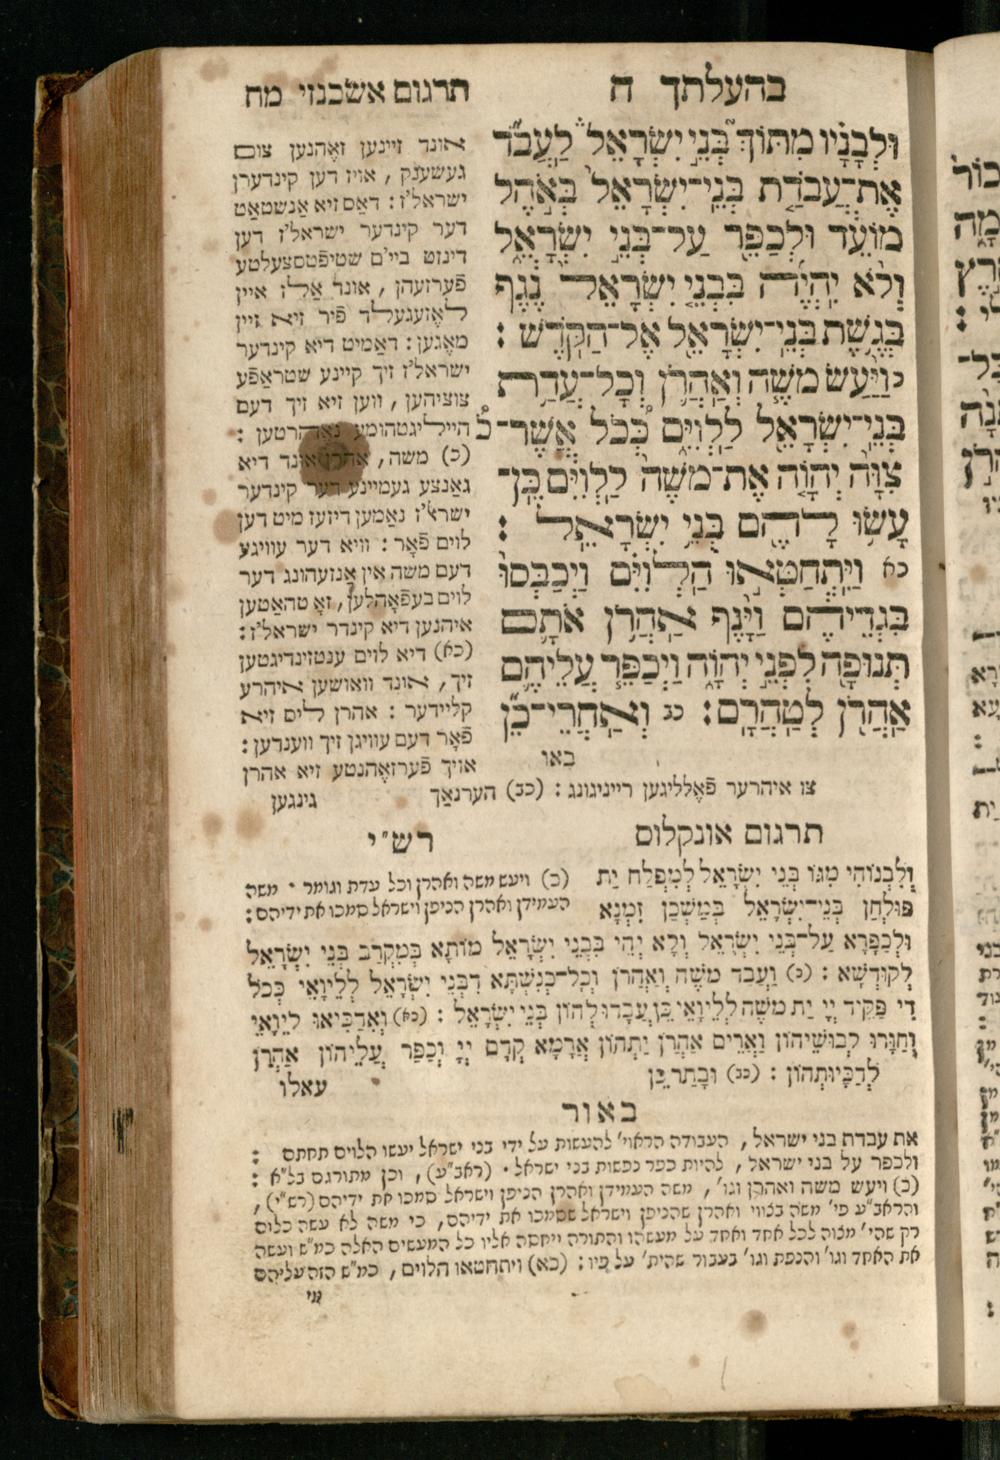 בהעלתך ח
תרגום אשכנזי מח
וּלְבָנָיו מִתּוֹךְ בְּנֵי יִשְׂרָאֵל לַעֲבֹד
אֶת־עֲבֹדַת בְּנֵי־יִשְׂרָאֵל בְּאֹהֶל
מוֹעֵד וּלְכַפֵּר עַל־בְּנֵי יִשְׂרָאֵל
וְלֹא יִהְיֶה בִּבְנֵי יִשְׂרָאֵל נֶגֶף
בְּגֶשֶׁת בְּנֵי־יִשְׂרָאֵל אֶל־הַקֹּדֶשׁ :
כ וַיַּעַשׂ מֹשֶׁה וְאַהֲרֹן וְכָל־עֲדַת
בְּנֵי־יִשְׂרָאֵל לַלְוִיִּם כְּכֹל אֲשֶׁר־
צִוָּה יְהוָֹה אֶת־מֹשֶׁה לַלְוִיִּם כֵּן־
עָשׂוּ לָהֶם בְּנֵי יִשְׂרָאֵל :
כא וַיִּתְחַטְּאוּ הַלְוִיִּם וַיְכַבְּסוּ
בִּגְדֵיהֶם וַיָּנֶף אַהֲרֹן אֹתָם
תְּנוּפָה לִפְנֵי יְהוָֹה וַיְכַפֵּר עֲלֵיהֶם
אַהֲרֹן לְטַהֲרָם : כב וְאַחֲרֵי־כֵן
באו
אונד זיינען זאָהנען צום
געשענק , אויז דען קינדערן
ישראל'ז : דאַס זיא אַנשטאַט
דער קינדער ישראל'ז דען
דינזט ביי'ם שטיפֿטסצעלטע
פֿערזעהן , אונד אַלז איין
לאָזעגעלד פֿיר זיא זיין
מאָגען : דאַמיט דיא קינדער
ישראל'ז זיך קיינע שטראַפֿע
צוציהען , ווען זיא זיך דעם
הייליגטהומע :
(כ) משה , אהרן אונד דיא
גאַנצע געמיינע דער קינדער
ישראל'ז נאַמען דיזעז מיט דען
לוים פֿאָר : וויא דער עוויגע
דעם משה אין אַנזעהונג דער
לוים בעפֿאָהלען , זאָ טהאַטען
איהנען דיא קינדר ישראל'ז :
(כא) דיא לוים ענטזינדיגטען
זיך , אונד וואושען איהרע
קליידער : אהרן ליס זיא
פֿאָר דעם עוויגן זיך ווענדען :
אויך פֿערזאָהנטע זיא אהרן
צו איהרער פֿאָלליגען רייניגונג : (כב) הערנאַך
גינגען
תרגום אונקלוס
וְלִבְנוֹהִי מִגּוֹ בְּנֵי יִשְׂרָאֵל לְמִפְלַח יַת
פּוּלְחַן בְּנֵי־יִשְׂרָאֵל בְּמַשְׁכַּן זִמְנָא
וּלְכַפָּרָא עַל־בְּנֵי יִשְׂרָאֵל וְלָא יְהֵי בִּבְנֵי יִשְׂרָאֵל מוֹתָא בְּמִקְרַב בְּנֵי יִשְׂרָאֵל
לְקוּדְשָׁא : (כ) וַעֲבַד מֹשֶׁה וְאַהֲרֹן וְכָל־כְּנִשְׁתָּא דִבְנֵי יִשְׂרָאֵל לְלֵיוָאֵי כְּכֹל
דִּי פַקִּיד יְיָ יַת מֹשֶׁה לְלֵיוָאֵי כֵּן עֲבָדוּ לְהוֹן בְּנֵי יִשְׂרָאֵל : (כא) וְאִדַּכִּיאוּ לֵיוָאֵי
וְחַוָּרוּ לְבוּשֵׁיהוֹן וַאֲרֵים אַהֲרֹן יַתְהוֹן אֲרָמָא קֳדָם יְיָ וְכַפַּר עֲלֵיהוֹן אַהֲרֹן
לְדַכָּיוּתְהוֹן : (כב) וּבָתַר כֵּן
עאלו
רש"י
(כ) ויעש משה ואהרן וכל עדת וגומר • משה
העמידן ואהרן הניפן וישראל סמכו את ידיהם :
באור
את עבדת בני ישראל , העבודה הראוי' להעשות על ידי בני ישראל יעשו הלוים תחתם :
ולכפר על בני ישראל , להיות כפר נפשות בני ישראל • (ראב"ע) , וכן מתורגם בל"א :
(כ) ויעש משה ואהרן וגו' , משה העמידן ואהרן הניפן וישראל סמכו את ידיהם (רש"י) ,
והראב"ע פי' משה בצווי ואהרן שהניפן וישראל שסמכו את ידיהם , כי משה לא עשה כלום
רק שהי' מצוה לכל אחד ואחד על מעשהו והתורה ייחסה אליו כל המעשים האלה כמ"ש ועשה
את האחד וגו' והנפת וגו' בעבור שהית' על פיו : (כא) ויתחטאו הלוים , כמ"ש הזה עליהם